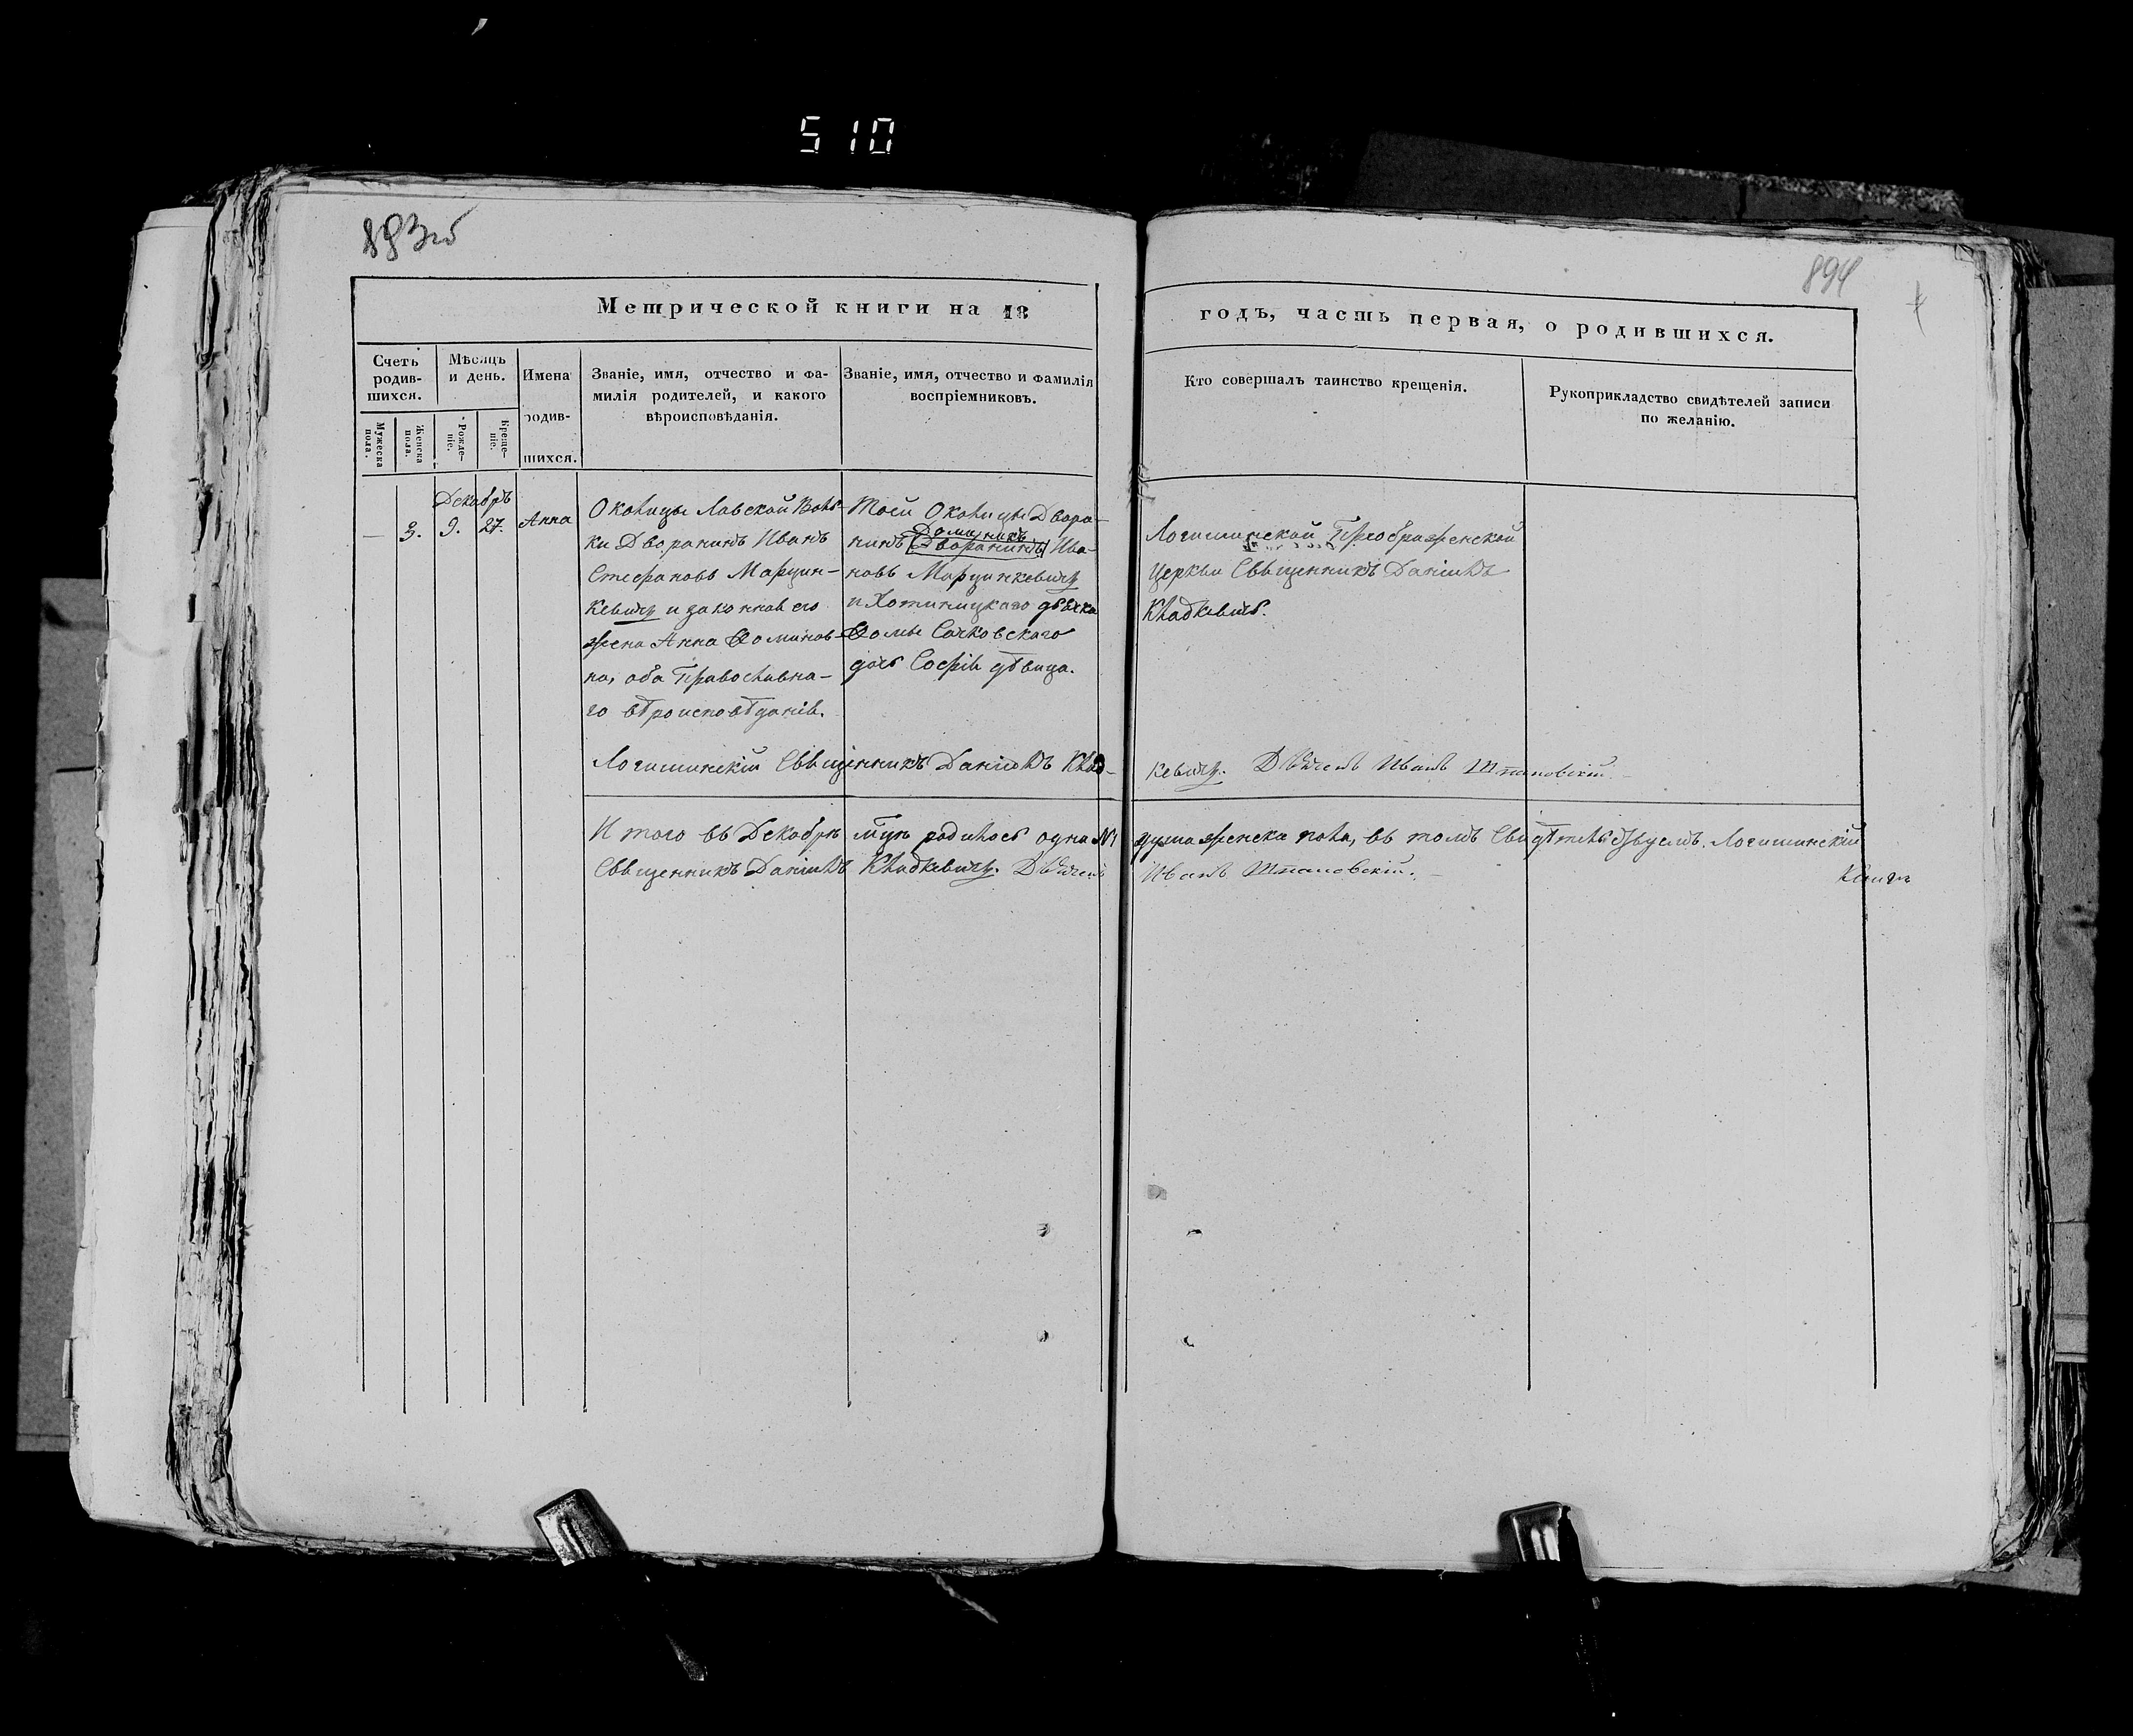 510
893об
894
Метрической книги на 18
годъ, часть первая, о родившихся.
Счетъ родив-шихся.
Мѣсяцъ и день.
Имена родив-шихся.
Званіе, имя, отчество и фа-милія родителей, и какого вѣроисповѣданія.
Званіе, имя, отчество и фамилія воспріемниковъ.
Кто совершалъ таинство крещенія.
Рукоприкладство свидѣтелей записи по желанію.
Мужеска пола.
Женска пола.
Рожде-ніе.
Креще-ніе.
Декабрь
— 3. 9. 27. Анна
Околицы Лавской Воль-
ки Дворянинъ Иванъ
Стефановъ Марцин-
кевичъ и законная его
жена Анна Фоминов-
на, оба Православна-
го вѣроисповѣданія.
Той Околицы Дворя-
Доминикъ
нинъ Дворянинъ Ива-
новъ Марцинкевичъ
и Хотыницкаго дьячка
Фомы Сачковскаго
дочь Софія дѣвица.
Логишинской Преображенской
Церкви Священникъ Даніилъ
Кладкевичъ.
Логишинскій Священникъ Даніилъ Клад-
кевичъ. Дьячекъ Иванъ
Итого въ Декабрѣ мцѣ родилось одна №1 душа женска пола, въ томъ свидѣтельствуемъ. Логишинскій
Священникъ Даніилъ Кладкевичъ. Дьячекъ Иванъ